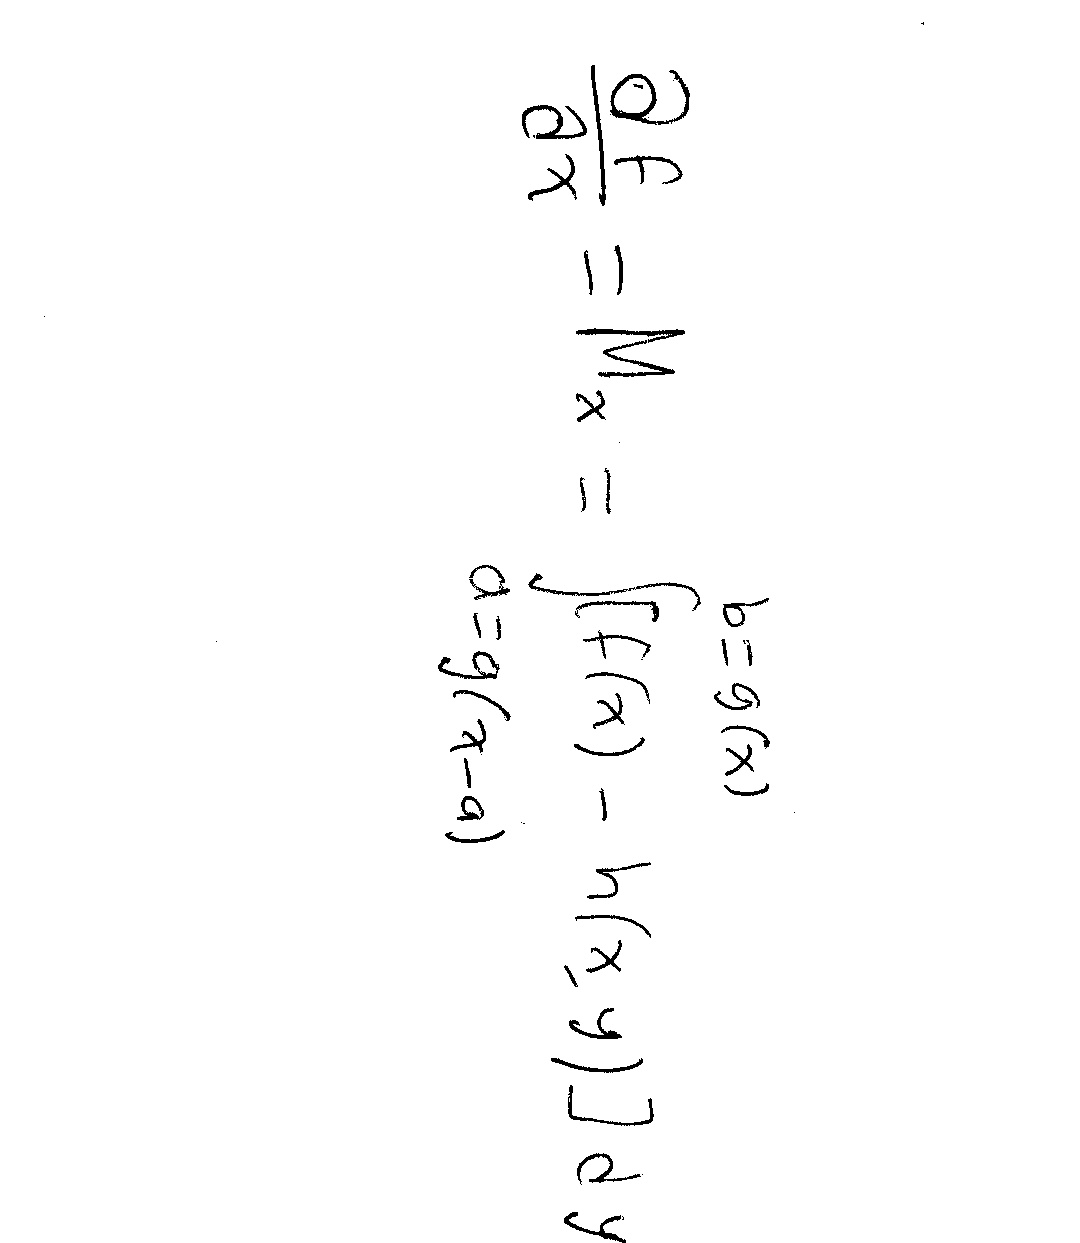 ∂f/∂x = Mₓ = ∫_{a=g(x-a)}^{b=g(x)} [f(x) - h(x, y)] dy